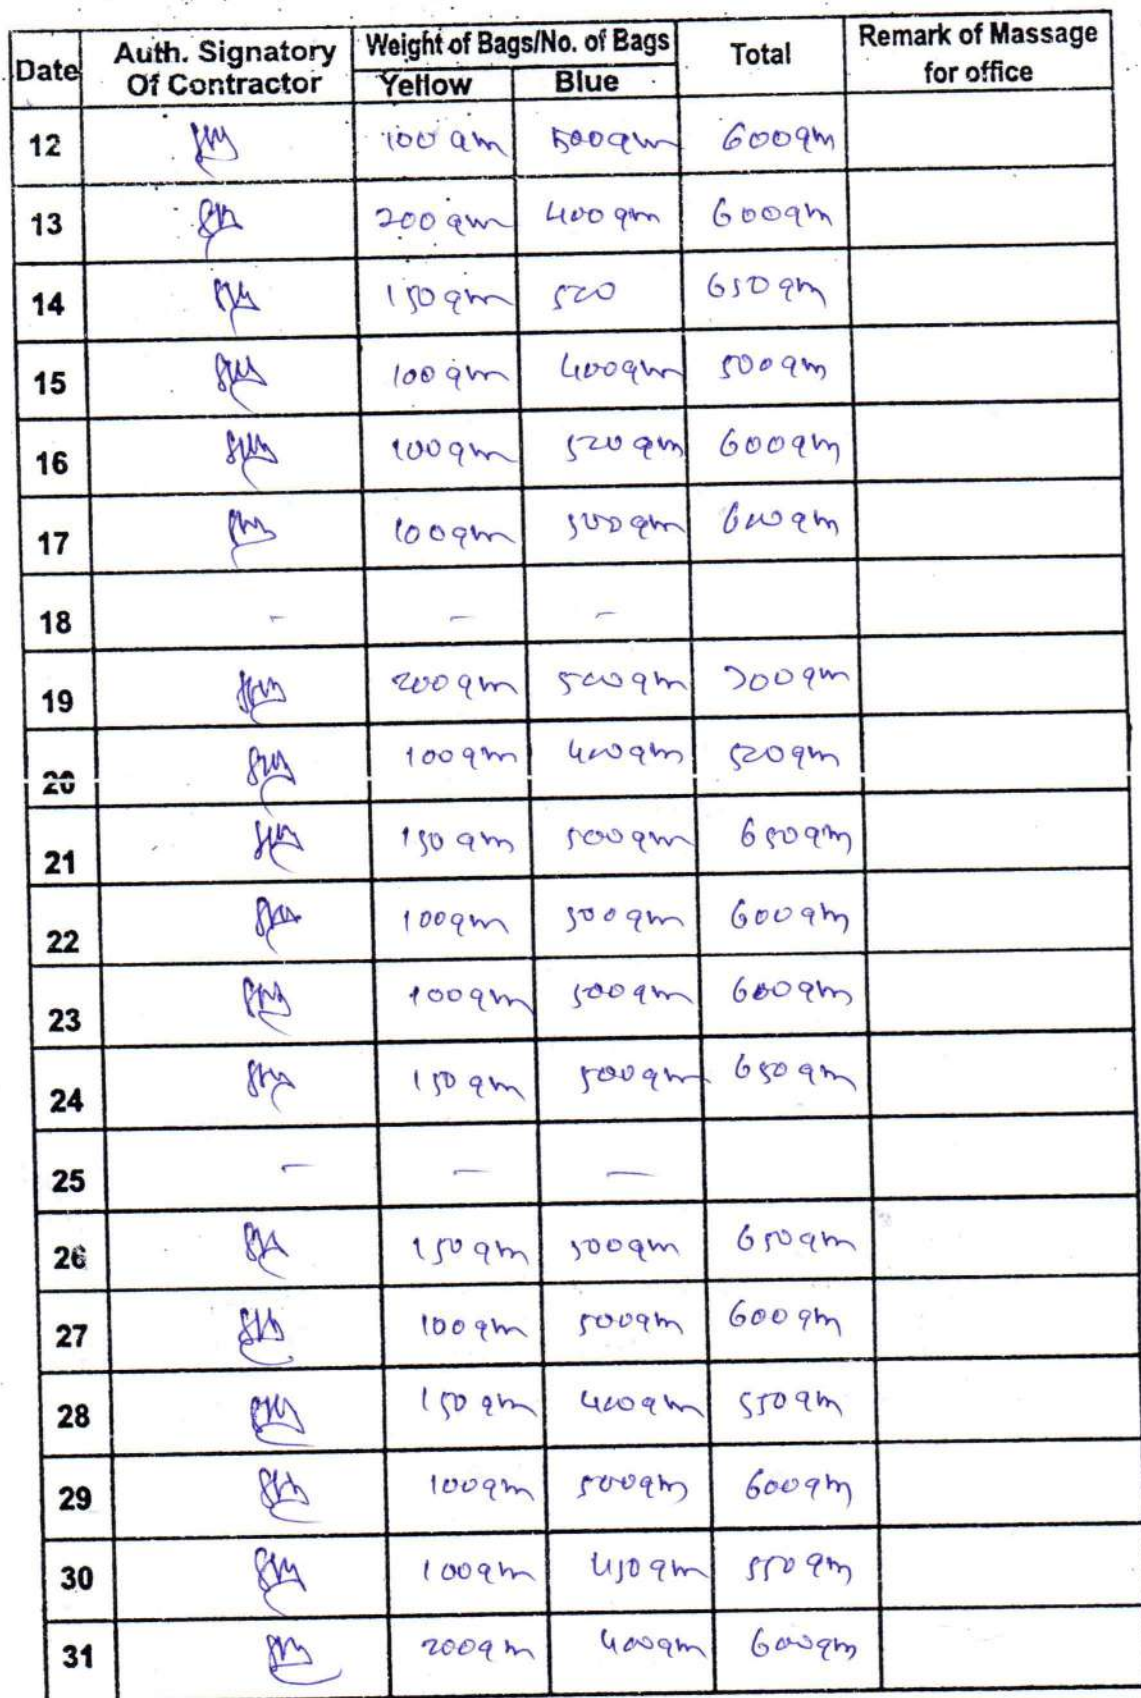 Date Auth. Signatory Of Contractor Weight of Bags/No. of Bags Yellow Blue Total Remark of Massage for office
12 100 gm 500gm 600gm
13 200 gm 400 gm 600gm
14 150 gm 500 650 gm
15 100 gm 400gm 500gm
16 100gm 500 gm 600gm
17 100gm 500gm 600gm
18 - - -
19 200gm 500gm 700gm
20 100gm 400gm 500gm
21 150 gm 500gm 650gm
22 100gm 500gm 600gm
23 100gm 500gm 600gm
24 150 gm 500gm 650 gm
25 - - -
26 150gm 500gm 650gm
27 100gm 500gm 600gm
28 150 gm 400gm 550gm
29 100gm 500gm 600gm
30 100gm 450gm 550 gm
31 200gm 400gm 600gm